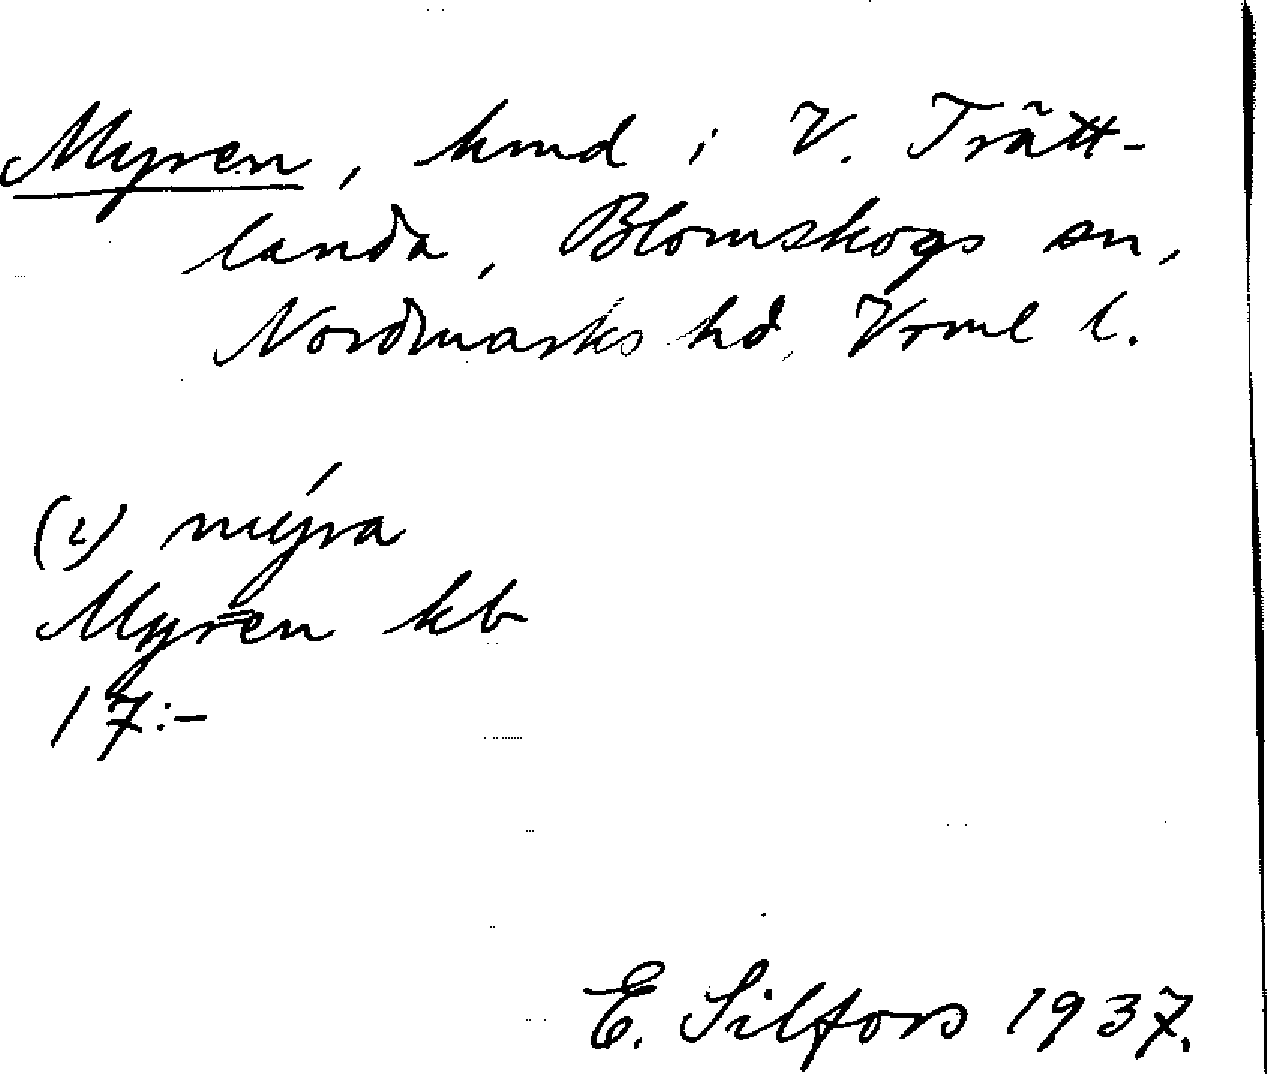 Myren, hmd i V. Trätt-
landa, Blomskogs sn,
Nordmarks hd, Vrml l.
(i) mýra
Myren kb
17:-
E. Silfors 1937.